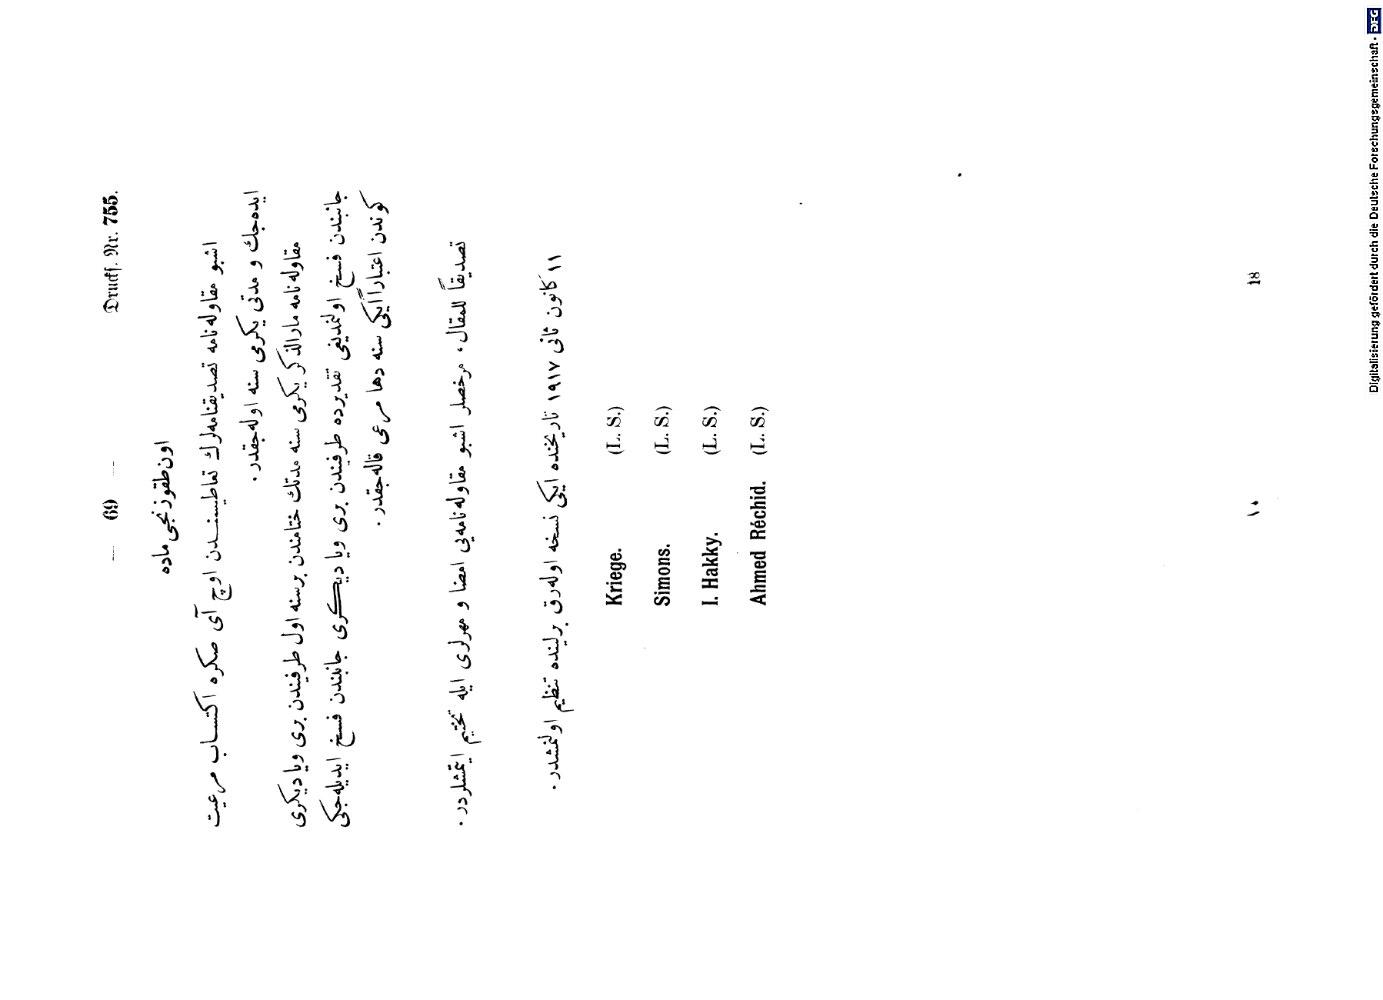 — 69 — Druckf. Nr. 755.
اون طقوزنجی ماده
اشبو مقاوله‌نامه تصدیقنامه‌لرك تعاطیسندن اوچ آی صکره اکتساب مرعیت
ایده‌جك و مدتی یکرمی سنه اوله‌جقدر .
مقاوله‌نامه مارالذکر یکرمی سنه مدتك ختامندن برسنه اول طرفیندن بری ویا دیکری
جانبندن فسخ اولنمدیغی تقدیرده طرفیندن بری ویا دیکری جانبندن فسخ ایدیله‌جکی
کوندن اعتباراً ایکی سنه دها مرعی قاله‌جقدر .
تصدیقاً للمقال ، مرخصلر اشبو مقاوله‌نامه‌یی امضا و مهرلری ایله تختیم ایتمشلردر .
۱۱ کانون ثانی ۱۹۱۷ تاریخنده ایکی نسخه اوله‌رق برلینده تنظیم اولنمشدر .
Kriege. (L. S.)
Simons. (L. S.)
I. Hakky. (L. S.)
Ahmed Réchid. (L. S.)
۱۰ 18
Digitalisierung gefördert durch die Deutsche Forschungsgemeinschaft - DFG